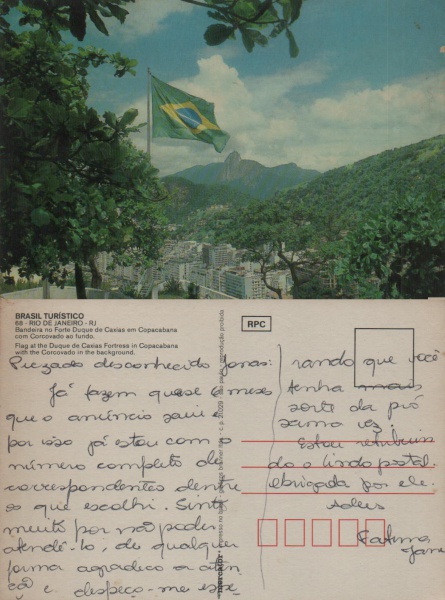 BRASIL TURÍSTICO
68 - RIO DE JANEIRO - RJ
Bandeira no Forte Duque de Caxias em Copacabana
com Corcovado ao fundo.
Flag at the Duque de Caxias Fortress in Copacabana
with the Corcovado in the background.
RPC
Prezado desconhecido Jonas:
Já fazem quase 6 meses
que o anúncio saiu e
por isso já estou com o
número completo de
correspondentes dentre
os que escolhi. Sinto
muito por não poder
atendê-lo, de qualquer
forma agradeço a aten
ção e despeço-me espe
rando que você
tenha mais
sorte da pró
xima vez.
Estou retribuin
do o lindo postal.
Obrigada por ele.
Adeus
Fatima
mercator
reprodução proibida